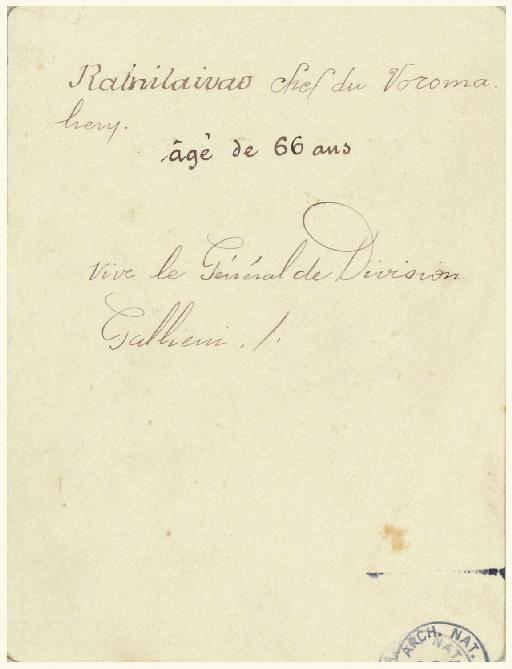 Rainilaivao chef du Voroma-
hery.
âgé de 66 ans
Vive le Général de Division
Gallieni ./.
ARCH. NAT.
NAT.